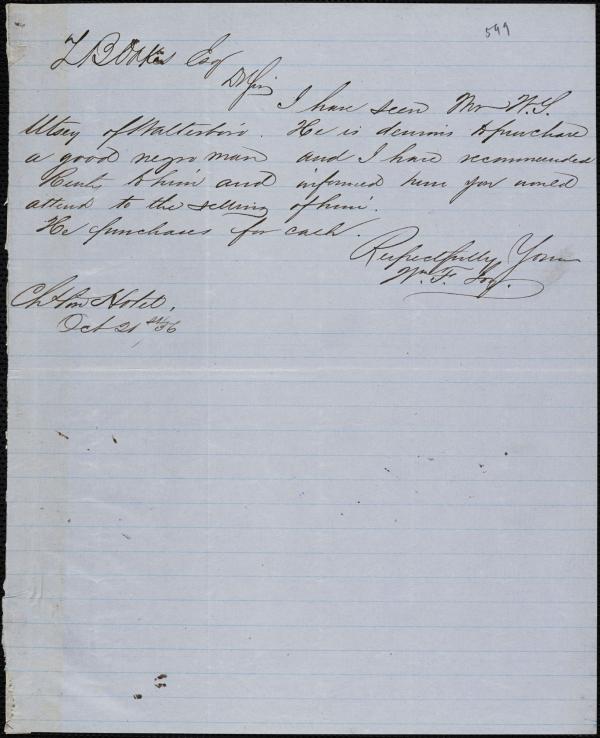 599
Z B Oakes Esq
Dr Sir
I have seen Mr W. G.
Utsey of Walterboro. He is desirous to purchase
a good negro man and I have recommended
to him and informed him you would
attend to the selling of him.
He purchases for cash.
Respectfully Yours
Wm. F.
Chston Hotel,
Oct 21st/56